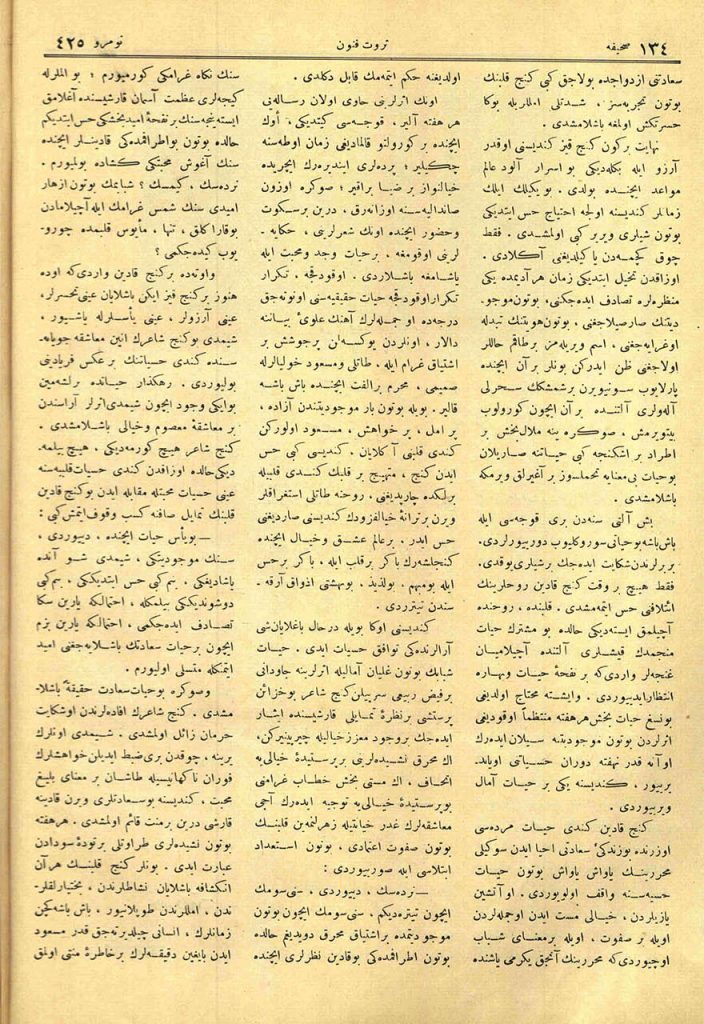 صحیفه ١٣٤
ثروت فنون
نومرو ٤٢٥
سعادتنی ازدواجده بولاجق کبی کنج قلبنك
بوتون تجربه‌سز ، شدتلی املاریله بوکا
حسرتکش اولمغه باشلامشدی .
نهایت برکون کنج قیز کندیسنی اوقدر
آرزو ایله بکله‌دیکی بو اسرار آلود عالم
مواعد ایچنده بولدی . بویکیلك ایلك
زمانلر کندیسنه اولجه احتیاج حس ایتدیکی
بوتون شیلری ویریر کبی اولمشدی . فقط
چوق کچمه‌دن یاکیلدیغنی آکلادی .
اوزاقدن تخیل ایتدیکی زمان هر آدیمده یکی
منظره‌لره تصادف ایده‌جکنی، بوتون موجو.
دیتنك صارصیلاجغنی ، بوتون هویتنك تبدله
اوغرایه‌جغنی ، اسم ویریله‌مز برطاقم حاللر
اولاجغنی ظن ایدرکن بونلر بر آن ایچنده
پارلایوب سونیویرن برشمشکك سحرلی
آله‌ولری آلتنده بر آن ایچون کورولوب
بیتویرمش ، صوکره ینه ملال‌بخش بر
اطراد بر اشکنجه کبی حیاتنه صاریلان
بوحیات بی‌معنایه تحملسوز بر آغیرلق ویرمکه
باشلامشدی .
بش آلتی سنه‌دن بری قوجه‌سی ایله
باش‌باشه بوحیاتی سوروکلیوب دورییورلردی.
بربرلرندن شکایت ایده‌جك برشیلری یوقدی.
فقط هیچ بر وقت کنج قادین روحلرینك
ائتلافنی حس ایتمه‌مشدی . قلبنده ، روحنده
آچیلمق ایسته‌دیکی حالده بو مشترك حیات
منجمدك قیشلری آلتنده آچیلامیان
غنچه‌لر واردی‌که بر نفحهٔ حیات وبهاره
انتظارایدییوردی . وایشته محتاج اولدیغی
بونسغ حیات بخش هرهفته منتظماً اوقودیغی
اثرلردن بوتون موجودیتنه سیلان ایده‌رك
اوآنه قدر نهفته دوران حسیاتنی اویاند.
یرییور ، کندیسنه یکی بر حیات آمال
ویرییوردی .
کنج قادین کندی حیات مرده‌سی
اوزرنده یوزندکی سعادتی احیا ایدن سوکیلی
محررینك یاواش یاواش بوتون حیات
حسیه‌سنه واقف اولویوردی . اوآتشین
یازیلردن ، خیالی مست ایدن اوجمله‌لردن
اویله بر صفوت ، اویله برمعنای شباب
اوچیوردی‌که محررینك آنجق یکرمی یاشنده
اولدیغنه حکم ایتمه‌مك قابل دکلدی .
اونك اثرلرینی حاوی اولان رساله‌یی
هر هفته آلیر ، قوجه‌سی کیتدیکی ، أوك
ایچنده بر کورولتو قالمادیغی زمان اوطه‌سنه
چکیلیر ؛ پرده‌لری ایندیره‌رك ایچریده
خیالنواز بر ضیا براقیر ؛ صوکره اوزون
صاندالیه‌سنه اوزانه‌رق ، درین برسکوت
وحضور ایچنده اونك شعرلرینی ، حکایه ـ
لرینی اوقومغه ، برحیات وجد ومحبت ایله
یاشامغه باشلاردی . اوقودقجه ، تکرار
تکرار اوقودقجه حیات حقیقیه‌سنی اونوته‌جق
درجه‌ده او جمله‌لرك آهنك علوئ بیاننه
دالار ، اونلردن یوکسه‌لن پرجوشش بر
اشتیاق غرام ایله . طاتلی ومسعود خولیالرله
صمیمی ، محرم برالفت ایچنده باش باشه
قالیر . بویله بوتون بار موجودیتندن آزاده ،
پر امل ، پر خواهش ، مسعود اولورکن
کندی قلبنی آکلایان . کندیسی کبی حس
ایدن کنج ، متهیج بر قلبك کندی قلبیله
برلکده چارپدیغنی . روحنه طاتلی استغراقلر
ویرن برترانهٔ خیالفزودك کندیسنی صاردیغنی
حس ایدر . برعالم عشق وخیال ایچنده
کنجلشه‌رك باکر برقلب ایله ، باکر برحس
ایله بومبهم . بولذیذ ، بوبهشتی اذواق آرقه ـ
سندن تیتررردی .
کندیسنی اوکا بویله درحال باغلایان‌شی
آرالرنده‌کی توافق حسیات ایدی . حیات
شبابك بوتون غلیان آمالیله اثرلرینه جاودانی
برفیض ربیعی سرپیلن کنج شاعر بوخزائن
پرستشی برنظرهٔ تمایلی قارشیسنده ایثار
ایده‌جك بروجود معززخیالیله چیرپینیرکن،
اك محرق نشیده‌لرینی برپرستیدهٔ خیالی‌یه
اتحاف . اك مستی بخش خطاب غرامنی
بوپرستیدهٔ خیالی‌یه توجیه ایده‌رك آجی
معاشقه‌لرك غدر خیانتیله زهرلنمه‌ین قلبنك
بوتون صفوت اعتمادی ، بوتون استعداد
ابتلاسی ایله صورییوردی :
ــ نرده‌سك ، دییوردی ، سنی‌سومك
ایچون تیتره‌دیکم . سنی سومك ایچون بوتون
موجودیتمده براشتیاق محرق دویدیغم حالده
بوتون اطرافمده‌کی بوقادین نظرلری ایچنده
سنك نکاه غرامکی کورمیورم ؛ بو املرله
کیجه‌لری عظمت آسمان قارشیسنده آغلامق
ایسته‌نجه سنك برنفحهٔ امیدبخشکی حس ایتدیکم
حالده بوتون بواطرافمده‌کی قادینلر ایچنده
سنك آغوش محبتکی کشاده بولمیورم .
نرده‌سك ، کیمسك ؟ شبابمك بوتون ازهار
امیدی سنك شمس غرامك ایله آچیلامادن
بوقارا کلق ، تنها ، مایوس قلبمده چورو-
یوب کیده‌جکمی ؟
واوته‌ده برکنج قادین واردی‌که اوده
هنوز برکنج قیز ایکن باشلایان عینی‌تحسرلر،
عینی آرزولر ، عینی یأسلرله یاشییور ،
شیمدی بوکنج شاعرك انین معاشقه جویانه‌ـ
سنده کندی حسیاتنك بر عکس فریادینی
بولیوردی . رهکذار حیاتده برلشه‌مین
بوایکی وجود ایچون شیمدی اثرلر آراسندن
بر معاشقهٔ معصوم وخیالی باشلامشدی .
کنج شاعر هیچ کورمه‌دیکی . هیچ بیلمه‌ـ
دیکی‌حالده اوزاقدن کندی حسیات‌قلبیه‌سنه
عینی حسیات محبتله مقابله ایدن بوکنج قادین
قلبنك تمایل صافنه کسب وقوف ایتمش‌کبی :
ــ بویأس حیات ایچنده ، دییوردی ،
سنك موجودیتکی ، شیمدی شو آنده
یاشادیغکی . بم‌کبی حس ایتدیککی . بم‌کبی
دوشوندیککی بیلمکله ، احتمالکه یارین سکا
تصادف ایده‌جکمی . احتمالکه یارین بزم
ایچون برحیات سعادتك باشلایه‌جغنی امید
ایتمکله متسلی اولیورم .
وصوکره بوحیات سعادت حقیقةً باشلا-
مشدی . کنج شاعرك افاده‌لرندن اوشکایت
حرمان زائل اولمشدی . شیمدی اونلرك
یرینه ، چوقدن بری‌ضبط ایدیلن خواهشلرك
فوران ناکهانیسیله طاشان بر معنای بلیغ
محبت ، کندیسنه بوسعادتلری ویرن قادینه
قارشی درین برمنت قائم اولمشدی . هرهفته
بوتون نشیده‌لری طراوتلی برتودهٔ سودادن
عبارت ایدی . بونلر کنج قلبنك هرآن
انکشافه باشلایان نشاطلرندن ، بختیارلقلر-
ندن ، املرندن طوپلانیور ، باش باشه‌کچن
زمانلرك ، انسانی چیلدیرته‌جق قدر مسعود
ایدن بایغین دقیقه‌لرك برخاطرهٔ متی اولمق